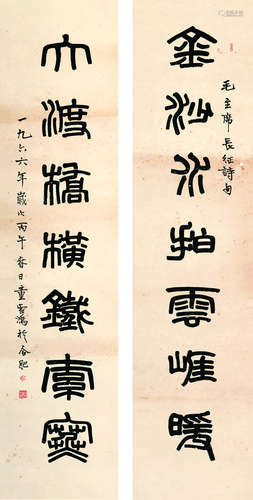 毛主席長征詩句
金沙水拍雲崕暖
大渡橋橫鐵索寒
一九六六年歲次丙午春日童雪鴻於合肥